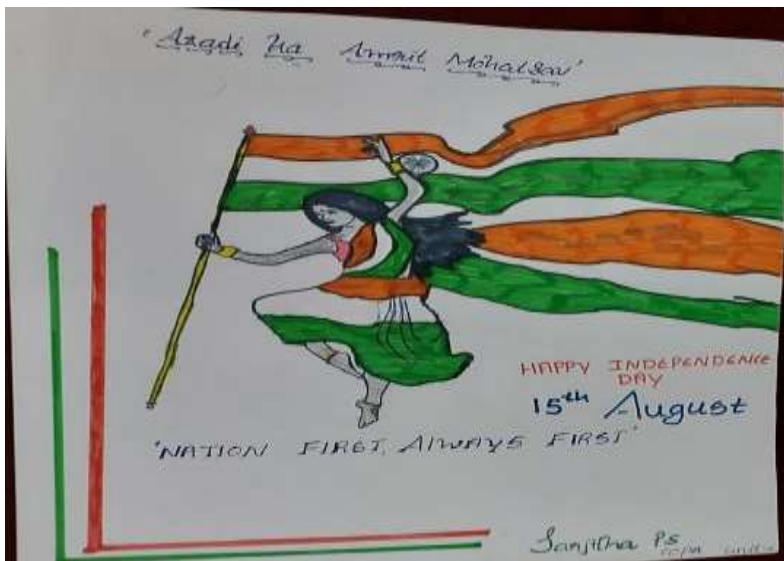 'Azadi Ka Amrit Mohatsav'
HAPPY INDEPENDENCE
DAY
15th August
'NATION FIRST, AlWAYS FIRST'
Sanjitha P.S